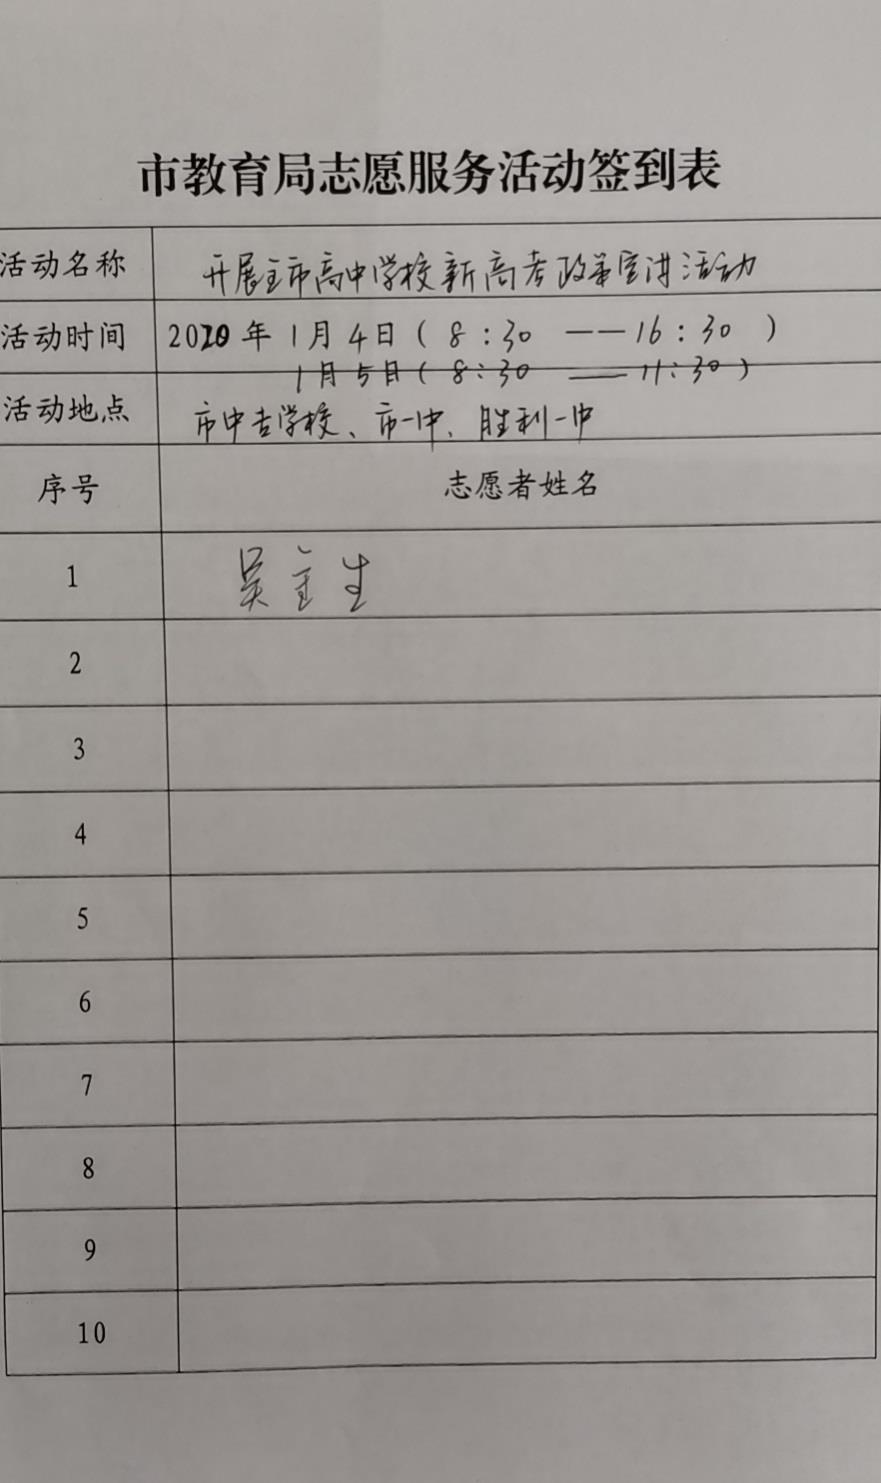 市教育局志愿服务活动签到表
活动名称 开展全市高中学校新高考政策宣讲活动
活动时间 2020年1月4日(8:30——16:30)
1月5日(8:30——11:30)
活动地点 市中专学校、市一中、胜利一中
序号 志愿者姓名
1 吴金生
2
3
4
5
6
7
8
9
10